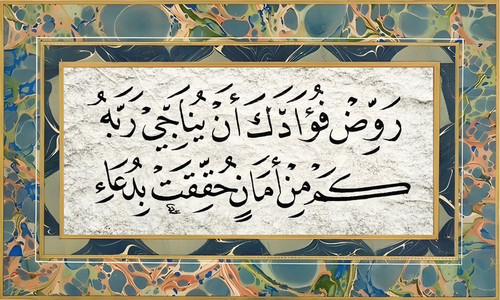 رَوِّضْ فُؤَادَكَ أَنْ يُنَاجِيَ رَبَّهُ
كَمْ مِنْ أَمَانٍ حُقِّقَتْ بِدُعَاءِ